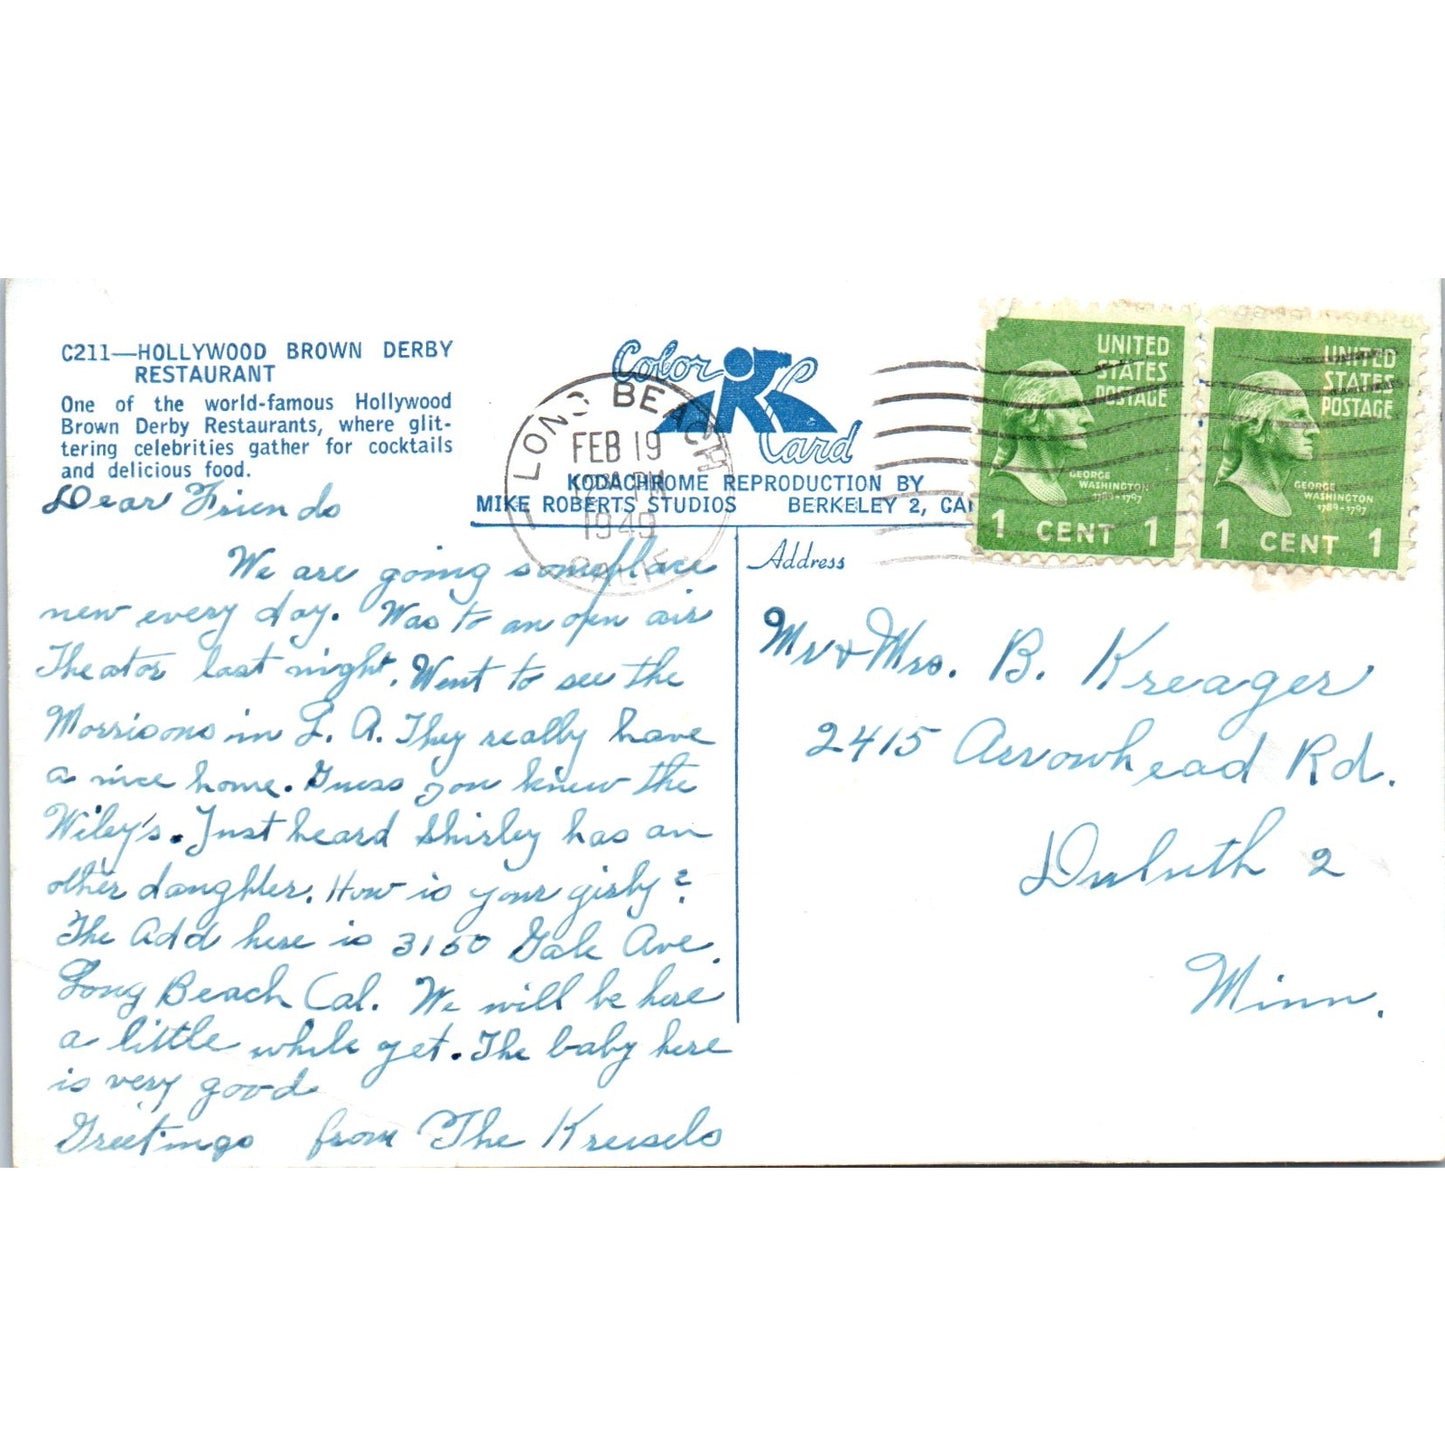 C211—HOLLYWOOD BROWN DERBY
RESTAURANT
One of the world-famous Hollywood
Brown Derby Restaurants, where glit-
tering celebrities gather for cocktails
and delicious food.
Color
Card
KODACHROME REPRODUCTION BY
MIKE ROBERTS STUDIOS BERKELEY 2, CA
LONG BEACH
FEB 19
PM
1949
CALIF.
UNITED
STATES
POSTAGE
GEORGE
WASHINGTON
1789-1797
1 CENT 1
UNITED
STATES
POSTAGE
GEORGE
WASHINGTON
1789-1797
1 CENT 1
Dear Friends
We are going someplace
new every day. Was to an open air
Theator last night. Went to see the
Morrisons in L. A. They really have
a nice home. Guess you knew the
Wiley's. Just heard Shirley has an
other daughter. How is your girly?
The Add here is 3150 Gale Ave.
Long Beach Cal. We will be here
a little while yet. The baby here
is very good
Greetings from The Kreisels
Address
Mr & Mrs. B. Kreager
2415 Arrowhead Rd.
Duluth 2
Minn.